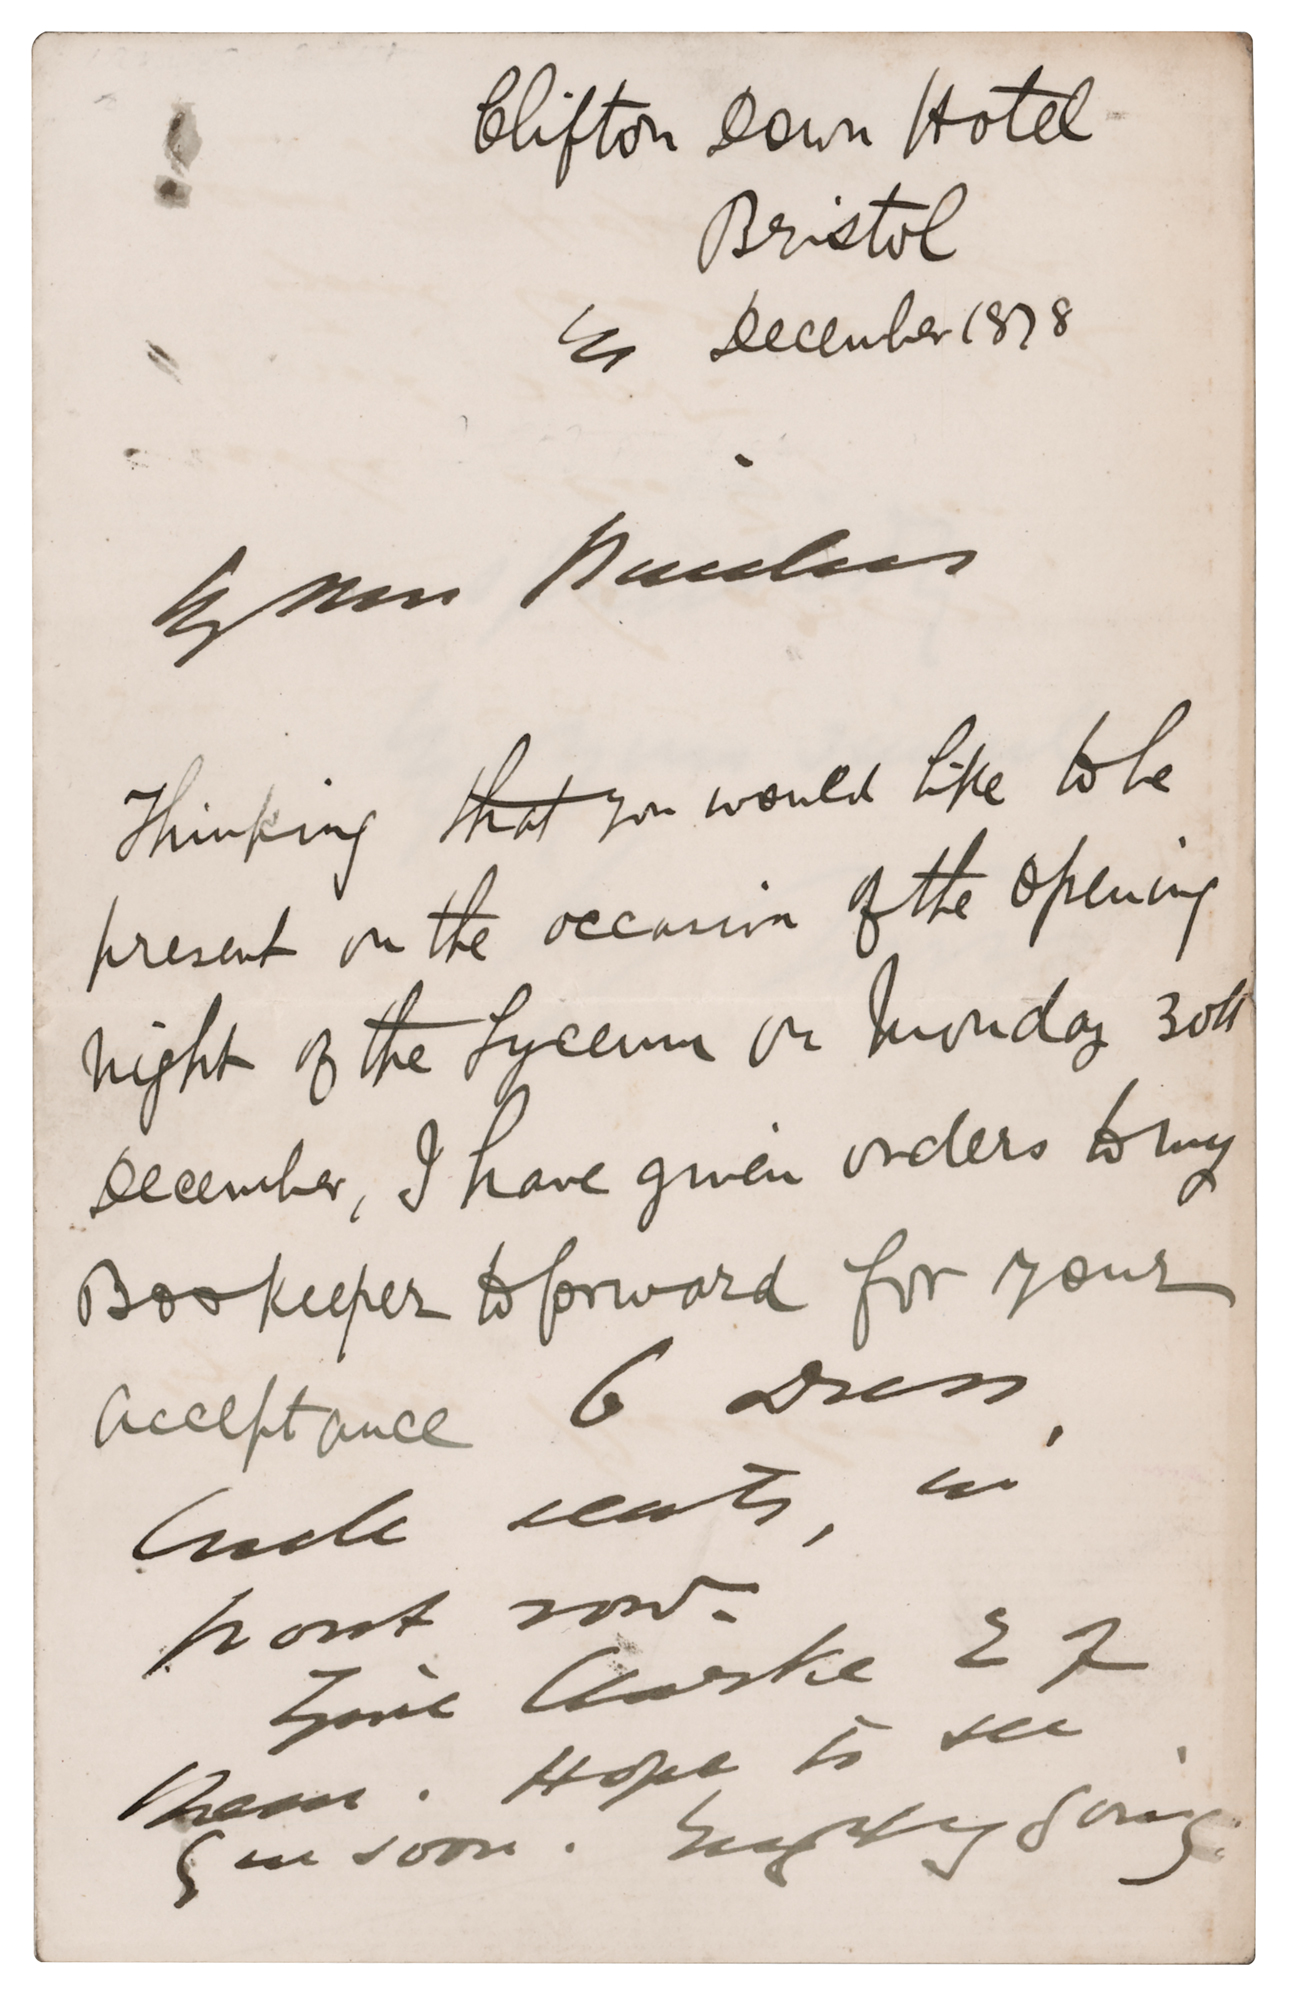 Clifton Down Hotel
Bristol
December 1878
My Dear
Thinking that you would like to be
present on the occasion of the opening
night of the Lyceum on Monday 30th
December, I have given orders to my
Bookeeper to forward for your
acceptance 6 Dress,
Circle seats, in
front row.
Clarke & F
Hope to see
soon. going